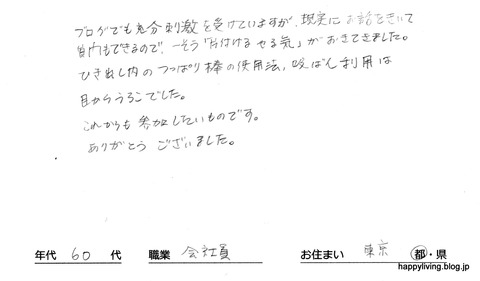 ブログでも充分刺激を受けていますが、現実にお話をきいて
質問もできるので、一そう「片付けるやる気」がおきてきました。
ひき出し内のつっぱり棒の使用法、吸ばん利用は
目からうろこでした。
これからも参加したいものです。
ありがとうございました。
年代 60 代 職業 会社員 お住まい 東京 都・県
happyliving.blog.jp